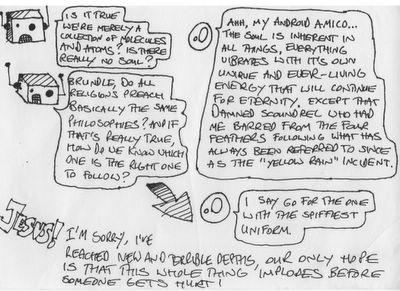 IS IT TRUE
WE'RE MERELY A
COLLECTION OF MOLECULES
AND ATOMS? IS THERE
REALLY NO SOUL?
AHH, MY ANDROID AMICO...
THE SOUL IS INHERENT IN
ALL THINGS, EVERYTHING
VIBRATES WITH IT'S OWN
UNIQUE AND EVER-LIVING
ENERGY THAT WILL CONTINUE
FOR ETERNITY. EXCEPT THAT
DAMNED SCOUNDREL WHO HAD
ME BARRED FROM THE FOUR
FEATHERS FOLLOWING WHAT HAS
ALWAYS BEEN REFERRED TO SINCE
AS THE "YELLOW RAIN" INCIDENT.
BRUNDLE, DO ALL
RELIGIONS PREACH
BASICALLY THE SAME
PHILOSOPHIES? AND IF
THAT'S REALLY TRUE,
HOW DO WE KNOW WHICH
ONE IS THE RIGHT ONE
TO FOLLOW?
I SAY GO FOR THE ONE
WITH THE SPIFFIEST
UNIFORM.
JESUS!
I'M SORRY, I'VE
REACHED NEW AND TERRIBLE DEPTHS, OUR ONLY HOPE
IS THAT THIS WHOLE THING IMPLODES BEFORE
SOMEONE GETS HURT!